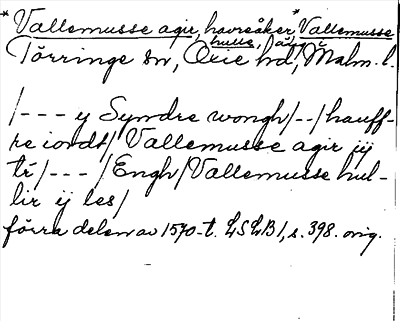 *Vallemusse agir, havreåker, *Vallemusse
hulle, äng
Törringe sn, Oxie hd, Malm. l.
/--- y Syndre wongh/--/hauff-
re iordt/ Vallemusse agir iij
tr/---/Engh/Vallemusse hul-
lir ij les/
förra delen av 1570-t. LSLB1, s. 398. orig.